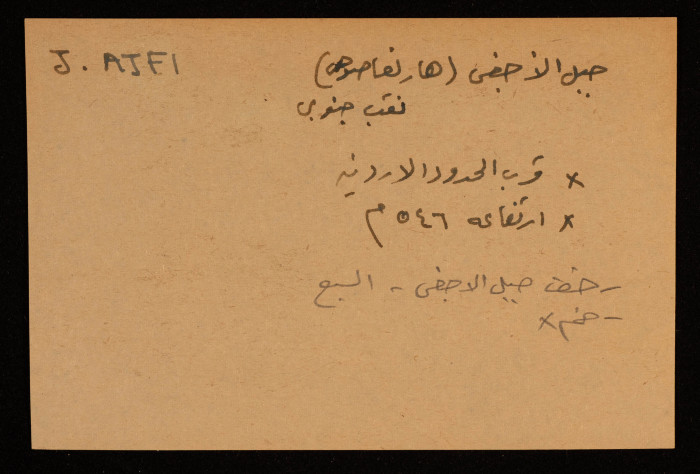 J. AJFI
جبل الأجفى (هار نعاصوص)
نقب جنوبي
x قرب الحدود الاردنية
x ارتفاعه ٥٤٦ م
جبل الاجفى - السبع
x